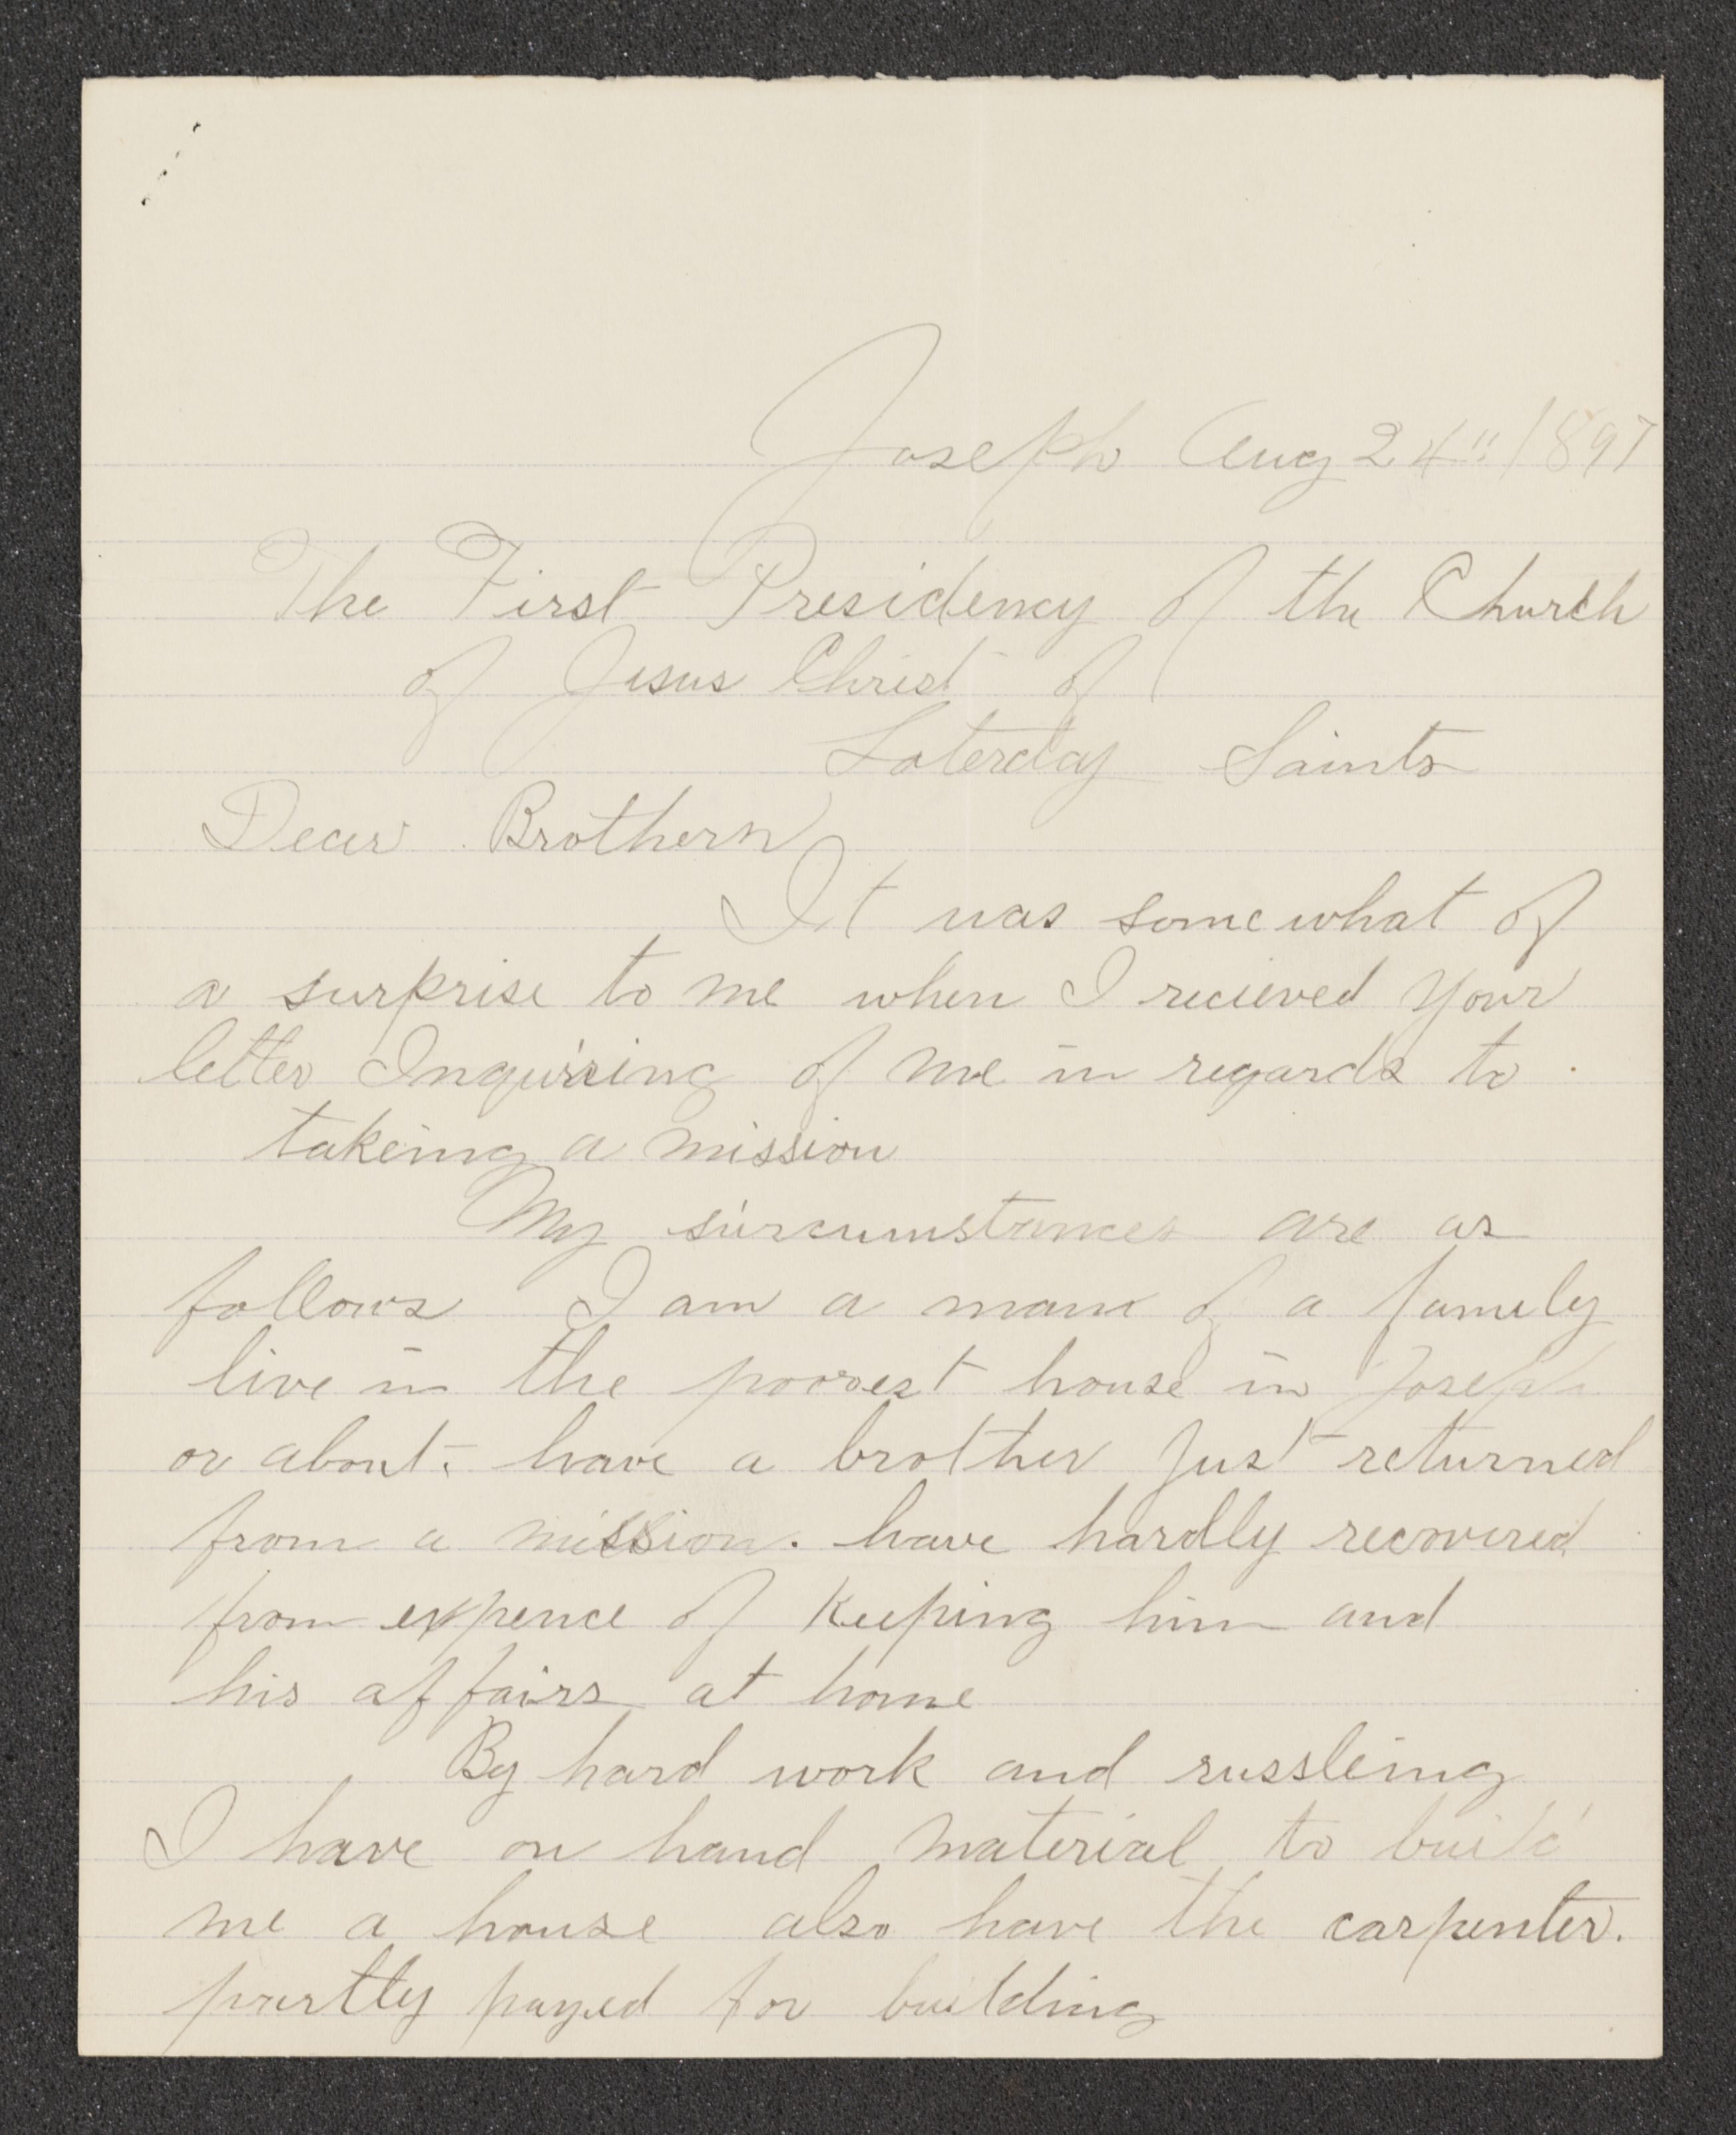 Joseph Aug 24" 1897
The First Presidency of the Church
of Jesus Christ of
Laterday Saints
Dear Brothern
It was somewhat of
a surprise to me when I recieved your
letter Inquiring of me in regards to
takeing a mission
My sircumstances are as
follows I am a man of a famely
live in the poorest house in Joseph
or about. have a brother just returned
from a mission. have hardly recovered
from expence of Keeping him and
his affairs at home
By hard work and russleing
I have on hand material to build
me a house also have the carpenter.
partly payed for building